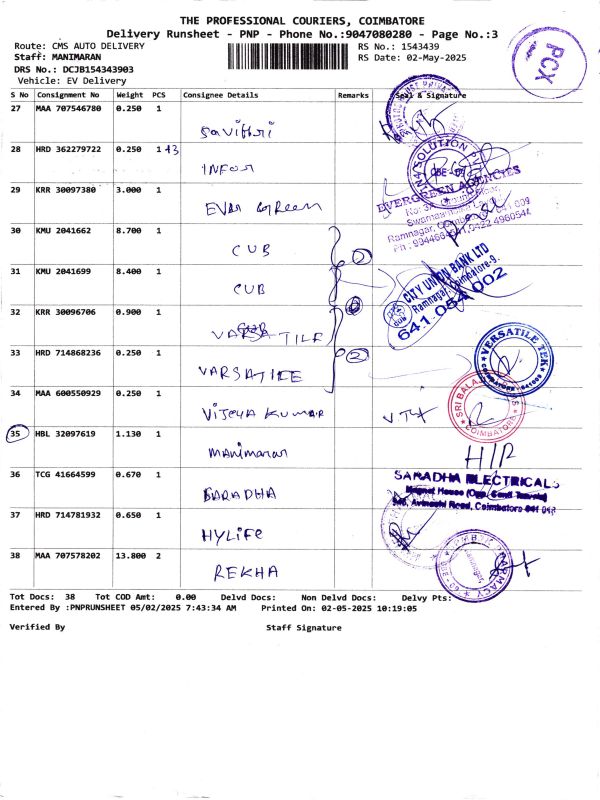 THE PROFESSIONAL COURIERS, COIMBATORE
Delivery Runsheet - PNP - Phone No.:9047080280 - Page No.:3
Route: CMS AUTO DELIVERY
RS No.: 1543439
Staff: MANIMARAN
RS Date: 02-May-2025
DRS No.: DCJB154343903
Vehicle: EV Delivery
PCX
S No Consignment No Weight PCS Consignee Details Remarks Seal & Signature
27 MAA 707546780 0.250 1
Savithri
28 HRD 362279722 0.250 1
INFOM
29 KRR 30097380 3.000 1
EVER GREEN
EVERGREEN AGENCIES
30 KMU 2041662 8.700 1
CUB
31 KMU 2041699 8.400 1
CUB
CITY UNION BANK LTD
Ramnagar, Coimbatore-9.
641 054 002
32 KRR 30096706 0.900 1
VARSATILE
33 HRD 714868236 0.250 1
VARSATILE
2
VERSATILE TEK
34 MAA 600550929 0.250 1
VIJEYA KUMAR
SRI BALA
COIMBATORE
35 HBL 32097619 1.130 1
Manimaran
H/P
36 TCG 41664599 0.670 1
SARADHA
SARADHA ELECTRICALS
Avinashi Road, Coimbatore
37 HRD 714781932 0.650 1
HYLIFE
38 MAA 707578202 13.800 2
REKHA
PHARMACY
Tot Docs: 38 Tot COD Amt: 0.00 Delvd Docs: Non Delvd Docs: Delvy Pts:
Entered By :PNPRUNSHEET 05/02/2025 7:43:34 AM Printed On: 02-05-2025 10:19:05
Verified By Staff Signature